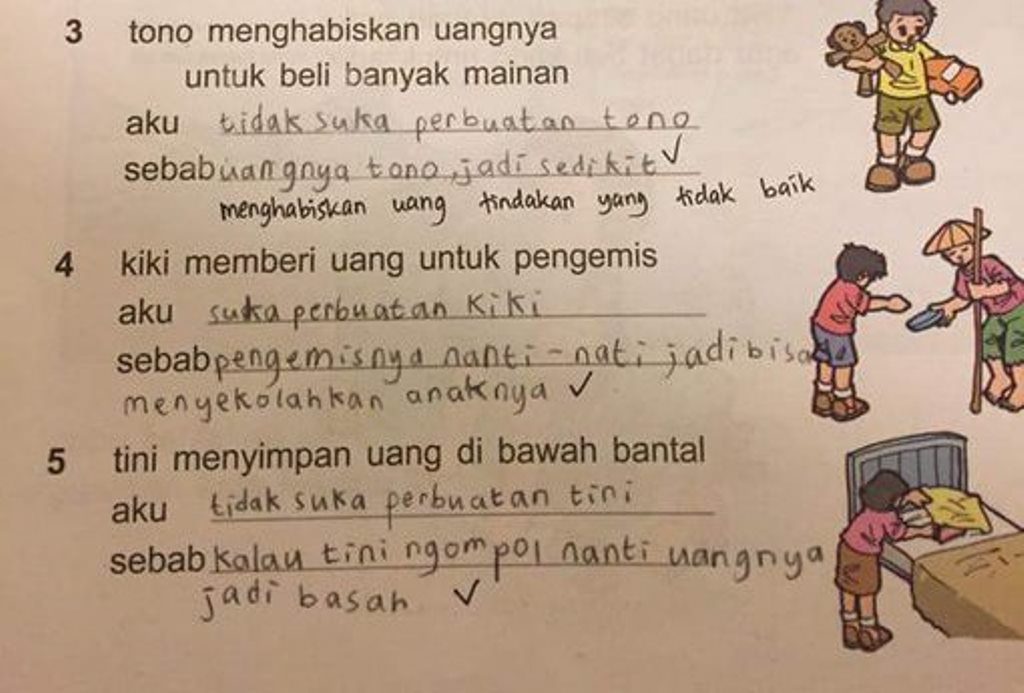 3 tono menghabiskan uangnya
untuk beli banyak mainan
aku tidak suka perbuatan tono
sebab uangnya tono, jadi sedikit ✓
menghabiskan uang tindakan yang tidak baik
4 kiki memberi uang untuk pengemis
aku suka perbuatan Kiki
sebab pengemisnya nanti-nati jadi bisa
menyekolahkan anaknya ✓
5 tini menyimpan uang di bawah bantal
aku tidak suka perbuatan tini
sebab kalau tini ngompol nanti uangnya
jadi basah ✓